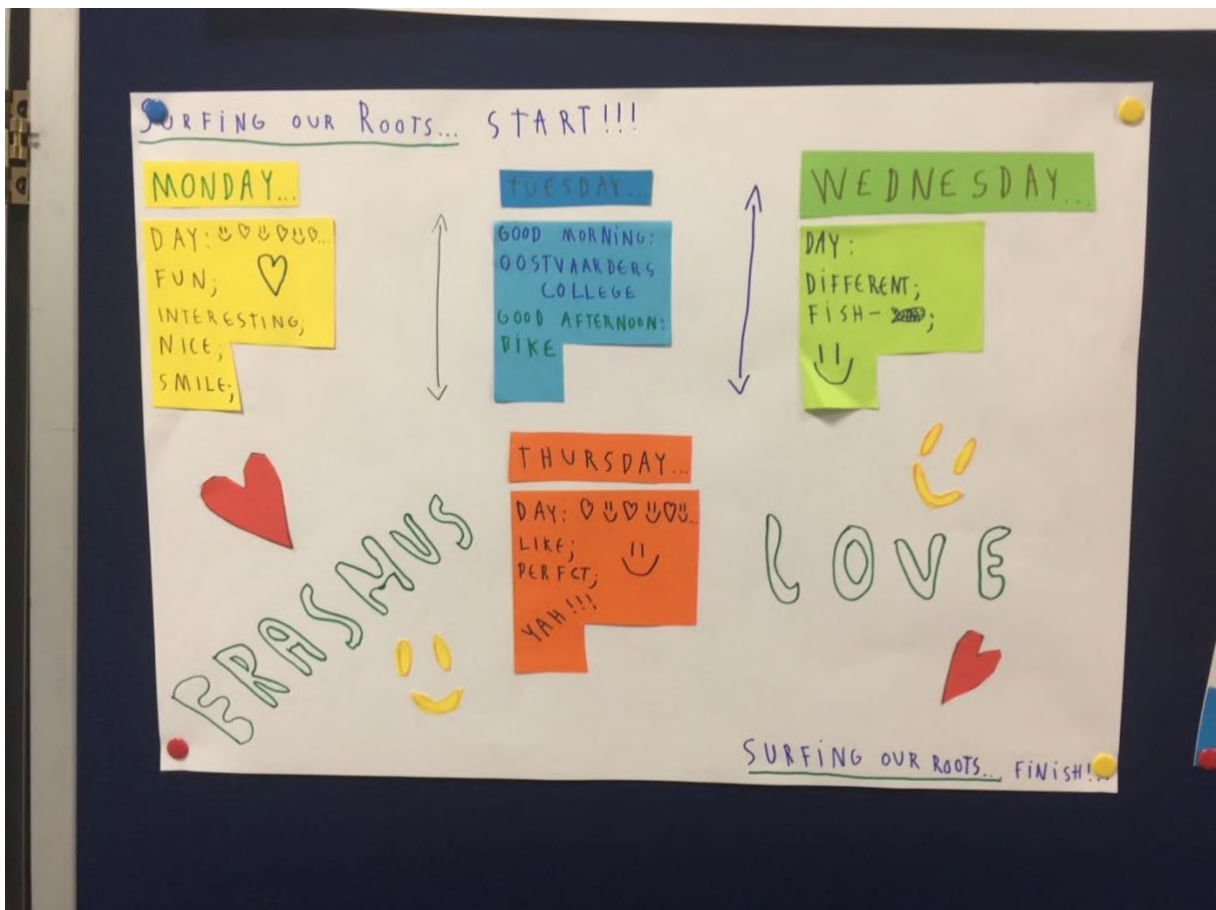 SURFING OUR ROOTS... START!!!
MONDAY...
DAY:
FUN;
INTERESTING;
NICE;
SMILE;
TUESDAY...
GOOD MORNING:
OOSTVAARDERS
COLLEGE
GOOD AFTERNOON:
BIKE
WEDNESDAY...
DAY:
DIFFERENT;
FISH- ;
THURSDAY...
DAY:
LIKE;
PERFCT;
YAH!!!
ERASMUS
LOVE
SURFING OUR ROOTS... FINISH!..